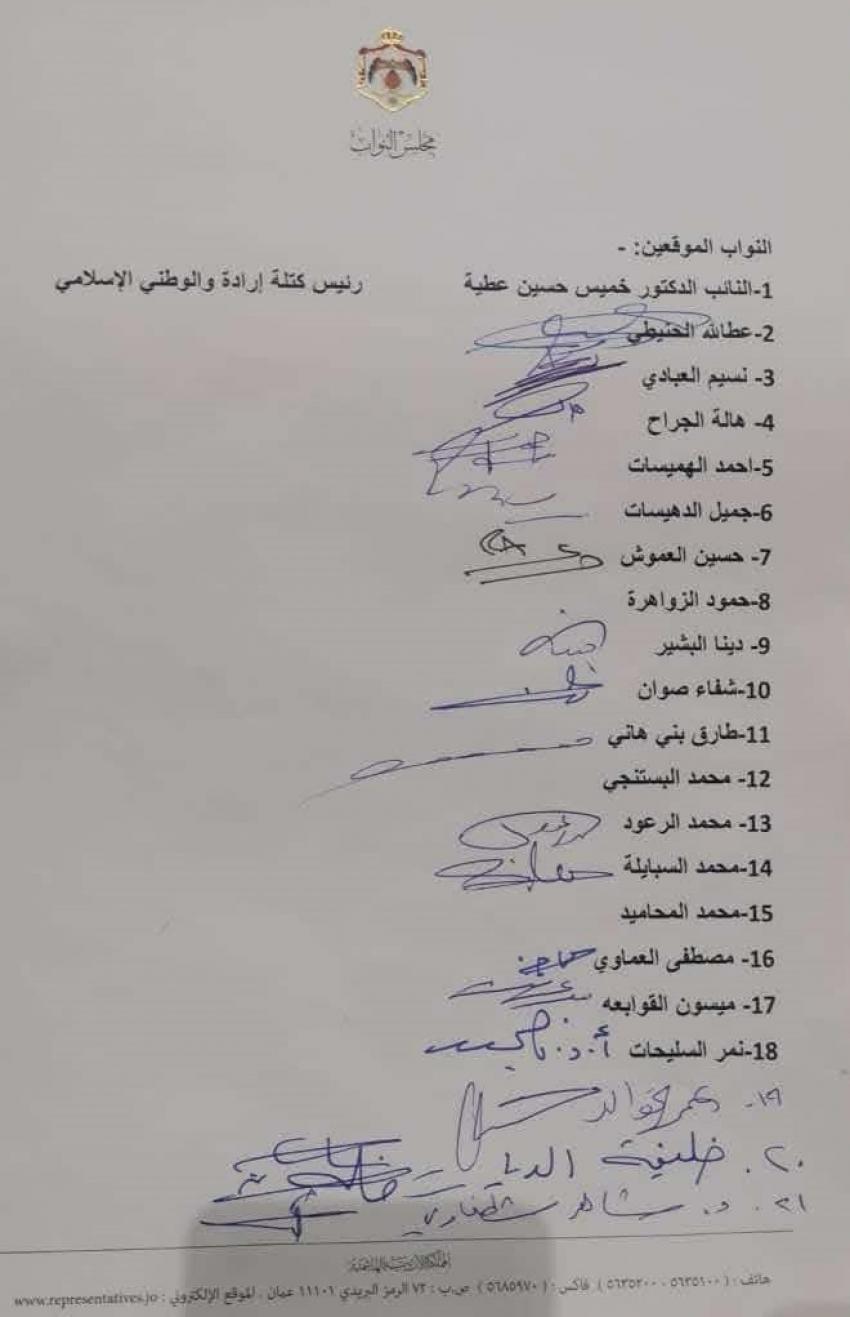 مجلس النواب
النواب الموقعين: -
1-النائب الدكتور خميس حسين عطية رئيس كتلة إرادة والوطني الإسلامي
2-عطالله الحنيطي
3- نسيم العبادي
4- هالة الجراح
5-احمد الهميسات
6-جميل الدهيسات
7- حسين العموش
8-حمود الزواهرة
9- دينا البشير
10-شفاء صوان
11-طارق بني هاني
12- محمد البستنجي
13- محمد الرعود
14-محمد السبايلة
15-محمد المحاميد
16- مصطفى العماوي
17- ميسون القوابعه
18-نمر السليحات أ.د.
١٩-
٢٠. خليفة الديات
٢١. د. شاهر شطناوي
المملكة الأردنية الهاشمية
هاتف : ( ٥٦٣٥١٠٠ ، ٥٦٣٥٢٠٠ ) فاكس : ( ٥٦٨٥٩٧٠ ) ص.ب : ٧٢ الرمز البريدي ١١١٠١ عمان . الموقع الإلكتروني : www.representatives.jo